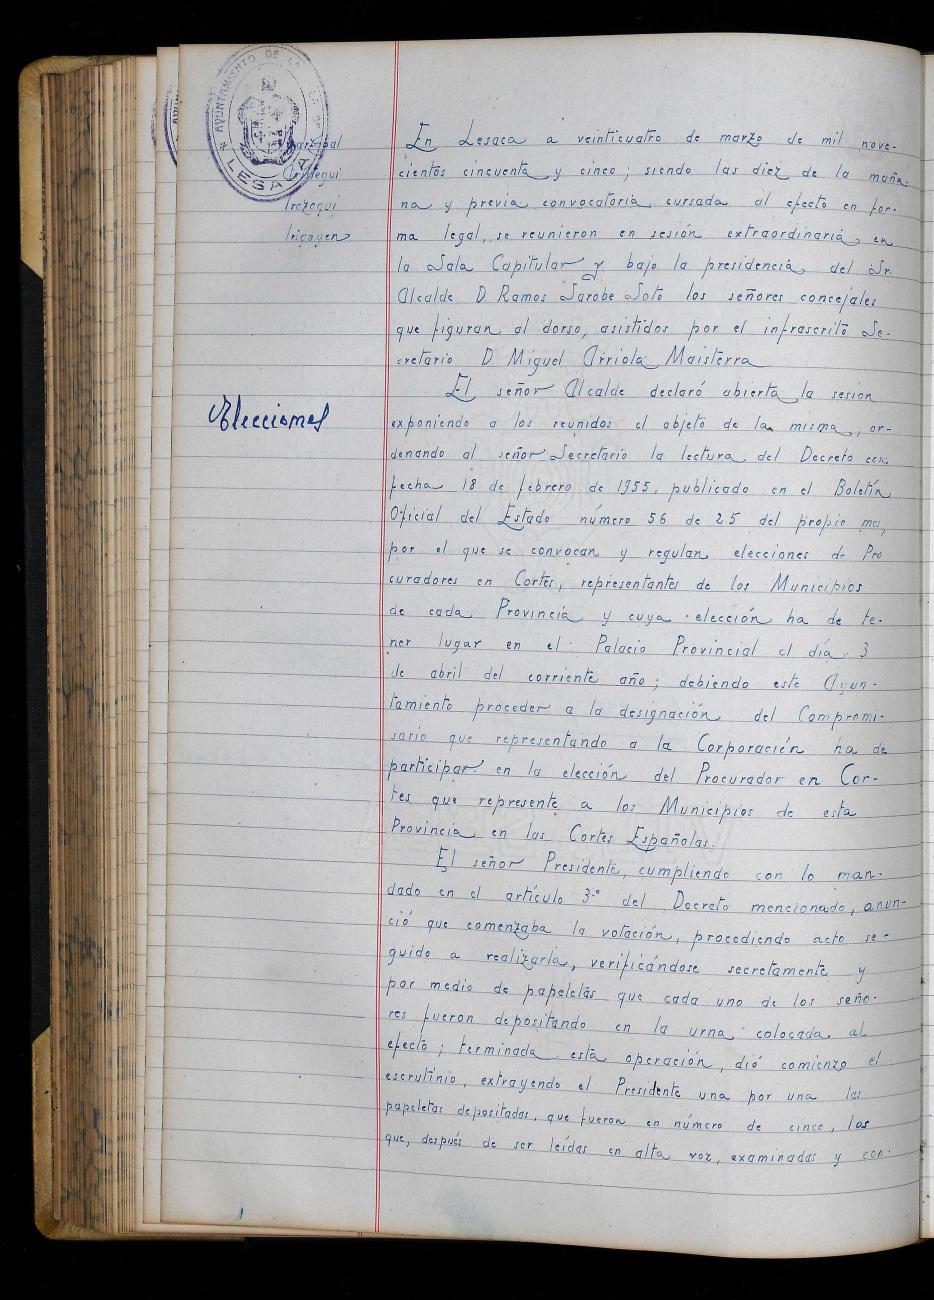 AYUNTAMIENTO DE LA
LESACA
Irazoqui
Irigoyen
En Lesaca a veinticuatro de marzo de mil nove-
cientos cincuenta y cinco; siendo las diez de la maña-
na y previa convocatoria cursada al efecto en for-
ma legal, se reunieron en sesión extraordinaria en
la Sala Capitular y bajo la presidencia del Sr.
Alcalde D. Ramos Sarobe Soto los señores concejales
que figuran al dorso, asistidos por el infrascrito Se-
cretario D. Miguel Arriola Maisterra
Elecciones
El señor Alcalde declaró abierta la sesion
exponiendo a los reunidos el objeto de la misma, or-
denando al señor Secretario la lectura del Decreto con
fecha 18 de febrero de 1955, publicado en el Boletín
Oficial del Estado número 56 de 25 del propio mes,
por el que se convocan y regulan elecciones de Pro
curadores en Cortes, representantes de los Municipios
de cada Provincia y cuya elección ha de te-
ner lugar en el Palacio Provincial el día 3
de abril del corriente año; debiendo este Ayun-
tamiento proceder a la designación del Compromi-
sario que representando a la Corporación ha de
participar en la elección del Procurador en Cor-
tes que represente a los Municipios de esta
Provincia en las Cortes Españolas.
El señor Presidente, cumpliendo con lo man-
dado en el artículo 3º del Decreto mencionado, anun-
ció que comenzaba la votación, procediendo acto se-
guido a realizarla, verificándose secretamente y
por medio de papeletas que cada uno de los seño-
res fueron depositando en la urna colocada al
efecto; terminada esta operación, dió comienzo el
escrutinio, extrayendo el Presidente una por una las
papeletas depositadas, que fueron en número de cinco, las
que, después de ser leídas en alta voz, examinadas y con-